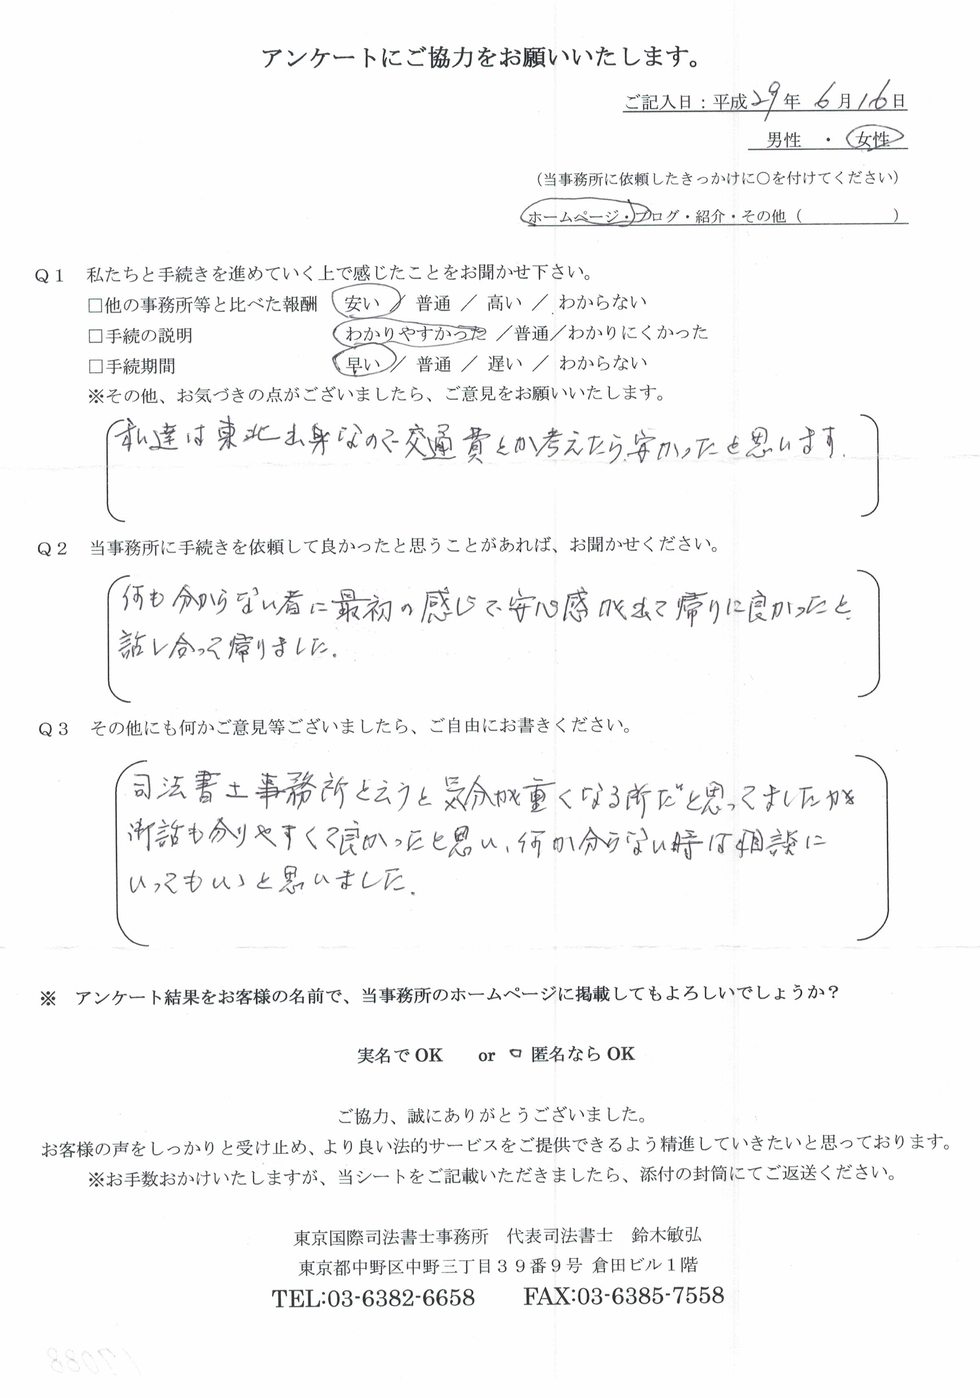 アンケートにご協力をお願いいたします。
ご記入日：平成29年 6月16日
男性 ・ 女性
（当事務所に依頼したきっかけに○を付けてください）
ホームページ・ブログ・紹介・その他（　　　　　）
Ｑ１　私たちと手続きを進めていく上で感じたことをお聞かせ下さい。
□他の事務所等と比べた報酬　安い ／ 普通 ／ 高い ／ わからない
□手続の説明　わかりやすかった ／普通／わかりにくかった
□手続期間　早い ／ 普通 ／ 遅い ／ わからない
※その他、お気づきの点がございましたら、ご意見をお願いいたします。
私達は東北出身なので交通費とか考えたら、安かったと思います.
Ｑ２　当事務所に手続きを依頼して良かったと思うことがあれば、お聞かせください。
何も分からない者に最初の感じで安心感が出て帰りに良かったと、
話し合って帰りました.
Ｑ３　その他にも何かご意見等ございましたら、ご自由にお書きください。
司法書士事務所と云うと気分が重くなる所だと思ってましたが
御話も分りやすくて良かったと思い、何か分らない時は相談に
いってもいゝと思いました.
※　アンケート結果をお客様の名前で、当事務所のホームページに掲載してもよろしいでしょうか？
実名でOK　　or　□ 匿名ならOK
ご協力、誠にありがとうございました。
お客様の声をしっかりと受け止め、より良い法的サービスをご提供できるよう精進していきたいと思っております。
※お手数おかけいたしますが、当シートをご記載いただきましたら、添付の封筒にてご返送ください。
東京国際司法書士事務所　代表司法書士　鈴木敏弘
東京都中野区中野三丁目３９番９号 倉田ビル１階
TEL:03-6382-6658　　FAX:03-6385-7558